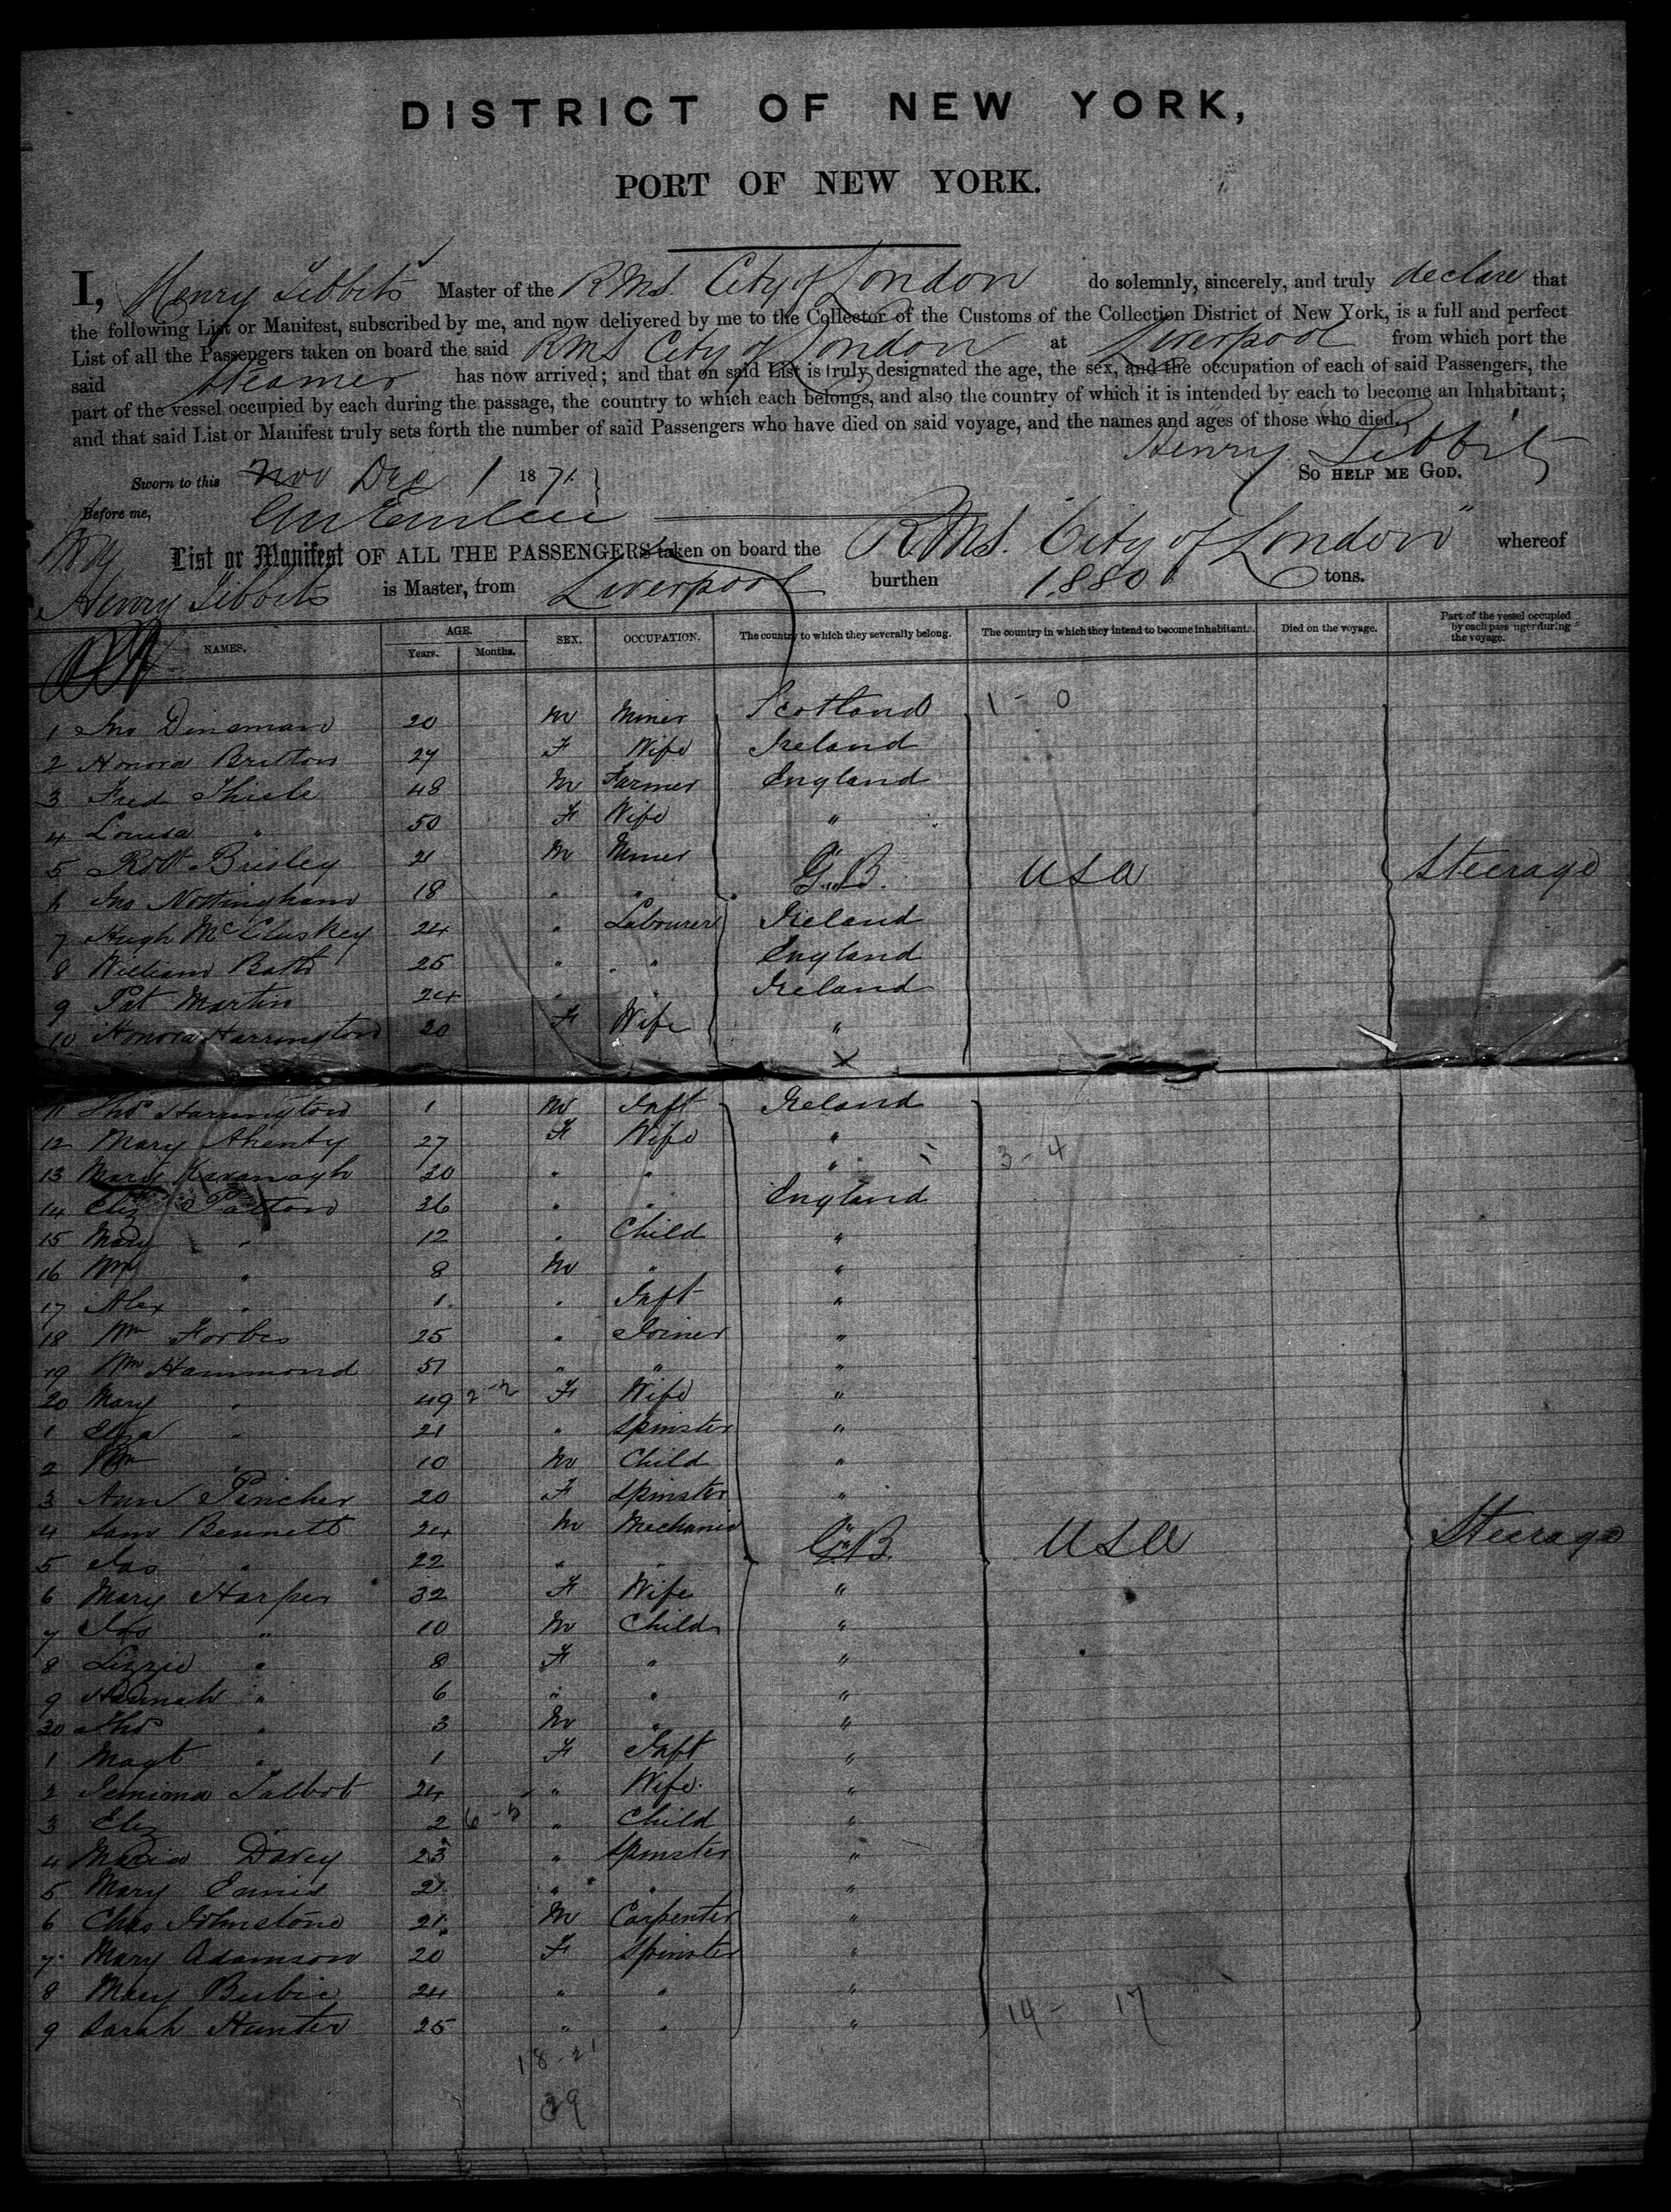 DISTRICT OF NEW YORK,
PORT OF NEW YORK.
I, Henry Tibbits Master of the RMS City of London do solemnly, sincerely, and truly declare that
the following List or Manifest, subscribed by me, and now delivered by me to the Collector of the Customs of the Collection District of New York, is a full and perfect
List of all the Passengers taken on board the said RMS City of London at Liverpool from which port the
said Steamer has now arrived; and that on said List is truly designated the age, the sex, and the occupation of each of said Passengers, the
part of the vessel occupied by each during the passage, the country to which each belongs, and also the country of which it is intended by each to become an Inhabitant;
and that said List or Manifest truly sets forth the number of said Passengers who have died on said voyage, and the names and ages of those who died.
Henry Tibbits
SO HELP ME GOD.
Sworn to this Nov Dec 1 1871
Before me,
List or Manifest OF ALL THE PASSENGERS taken on board the RMS. "City of London" whereof
Henry Tibbits is Master, from Liverpool burthen 1880 tons.
NAMES. AGE. Years. Months. SEX. OCCUPATION. The country to which they severally belong. The country in which they intend to become inhabitants. Died on the voyage. Part of the vessel occupied by each passenger during the voyage.
1 Jno Dinsman 20 M Miner Scotland 1 - 0
2 Honora Britton 27 F Wife Ireland
3 Fred Thiele 48 M Farmer England
4 Louisa " 50 F Wife "
5 Robt Brisley 21 M Miner " USA Steerage
6 Jno Nottingham 18 " " G.B.
7 Hugh McCluskey 24 " Labourer Ireland
8 William Batts 25 " " England
9 Pat Martin 24 " " Ireland
10 Honora Harrington 20 F Wife "
x
11 Thos Harrington 1 M Inft Ireland
12 Mary Ahenty 27 F Wife "
13 Mary Kavanagh 20 " " " 3 - 4
14 Eliz Patton 36 " " England
15 Mary " 12 " Child "
16 Wm " 8 M " "
17 Alex " 1 " Inft "
18 Wm Forbes 25 " Joiner "
19 Wm Hammond 51 " " "
20 Mary " 49 F Wife "
1 Eliza " 21 " Spinster "
2 Wm " 10 M Child "
3 Ann Pincher 20 F Spinster "
4 Sam Bennett 24 M Mechanic " USA Steerage
5 Jas " 22 " " G.B.
6 Mary Harper 32 F Wife "
7 Jas " 10 M Child "
8 Lizzie " 8 F " "
9 Hannah " 6 " " "
30 Thos " 3 M " "
1 Magt " 1 F Inft "
2 Jemima Talbot 24 " Wife "
3 Eliz " 2 " Child "
4 Maria Davey 23 " Spinster "
5 Mary Ennis 21 " " "
6 Chas Johnstone 21 M Carpenter "
7 Mary Adamson 20 F Spinster "
8 Mary Beebie 24 " " "
9 Sarah Hunter 25 " " " 14 - 17
18 - 21
39